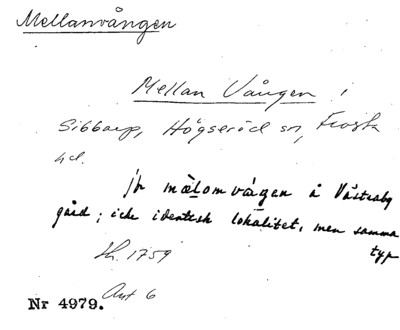 Mellanvången
Mellan Vången i
Sibbarp, Högseröd sn, Frosta
hd.
jfr mälomvågen å Västraby
gård; icke identisk lokalitet, men samma
typ
Sk. 1759
Avt 6
Nr 4979.